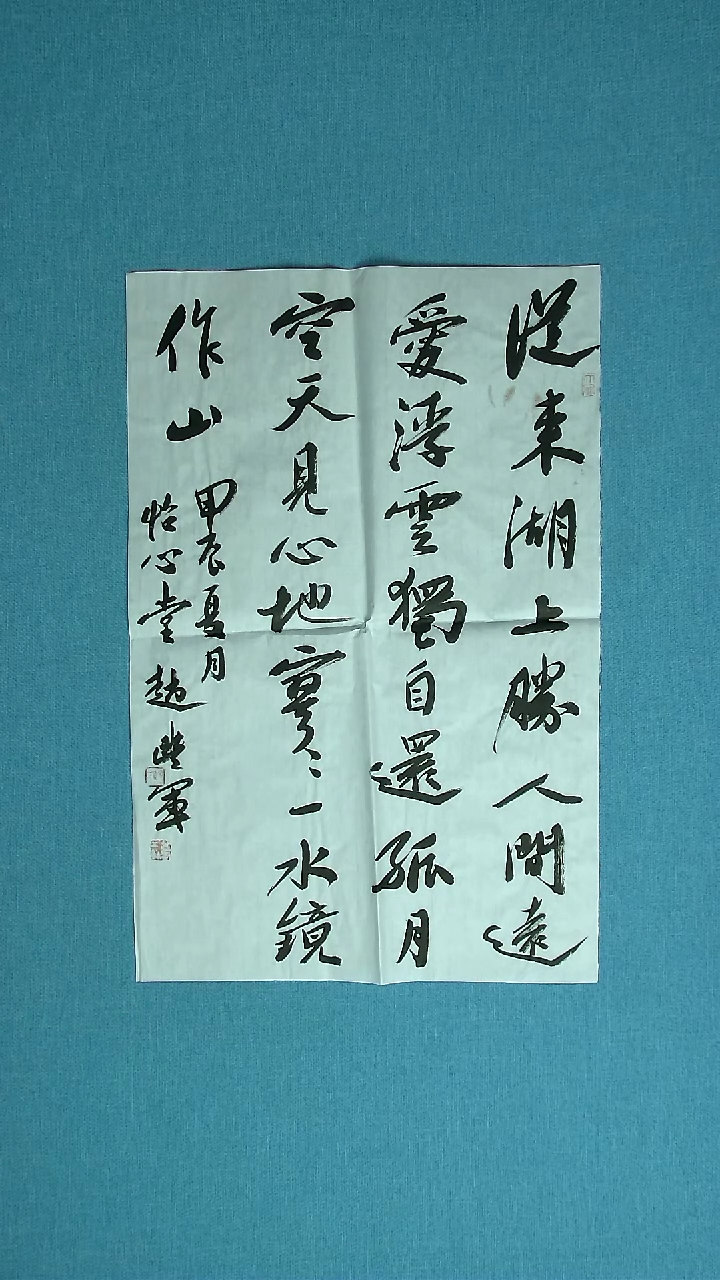 從来湖上勝人間遠
愛浮雲獨自還孤月
空天見心地寥〻一水鏡
作山
甲辰夏月
怡心堂趙軍